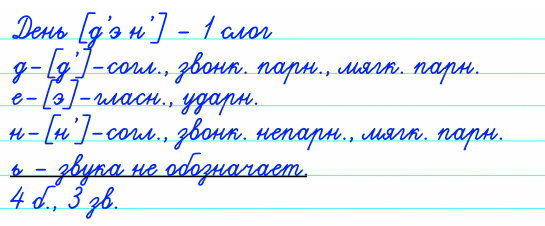 День [д’э н’] - 1 слог
д-[д’]-согл., звонк. парн., мягк. парн.
е-[э]-гласн., ударн.
н-[н’]-согл., звонк. непарн., мягк. парн.
ь - звука не обозначает.
4 б., 3 зв.